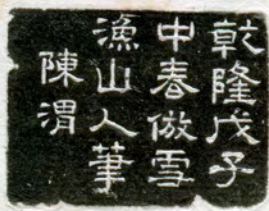 乾隆戊子
中春倣雪
漁山人筆
陳渭